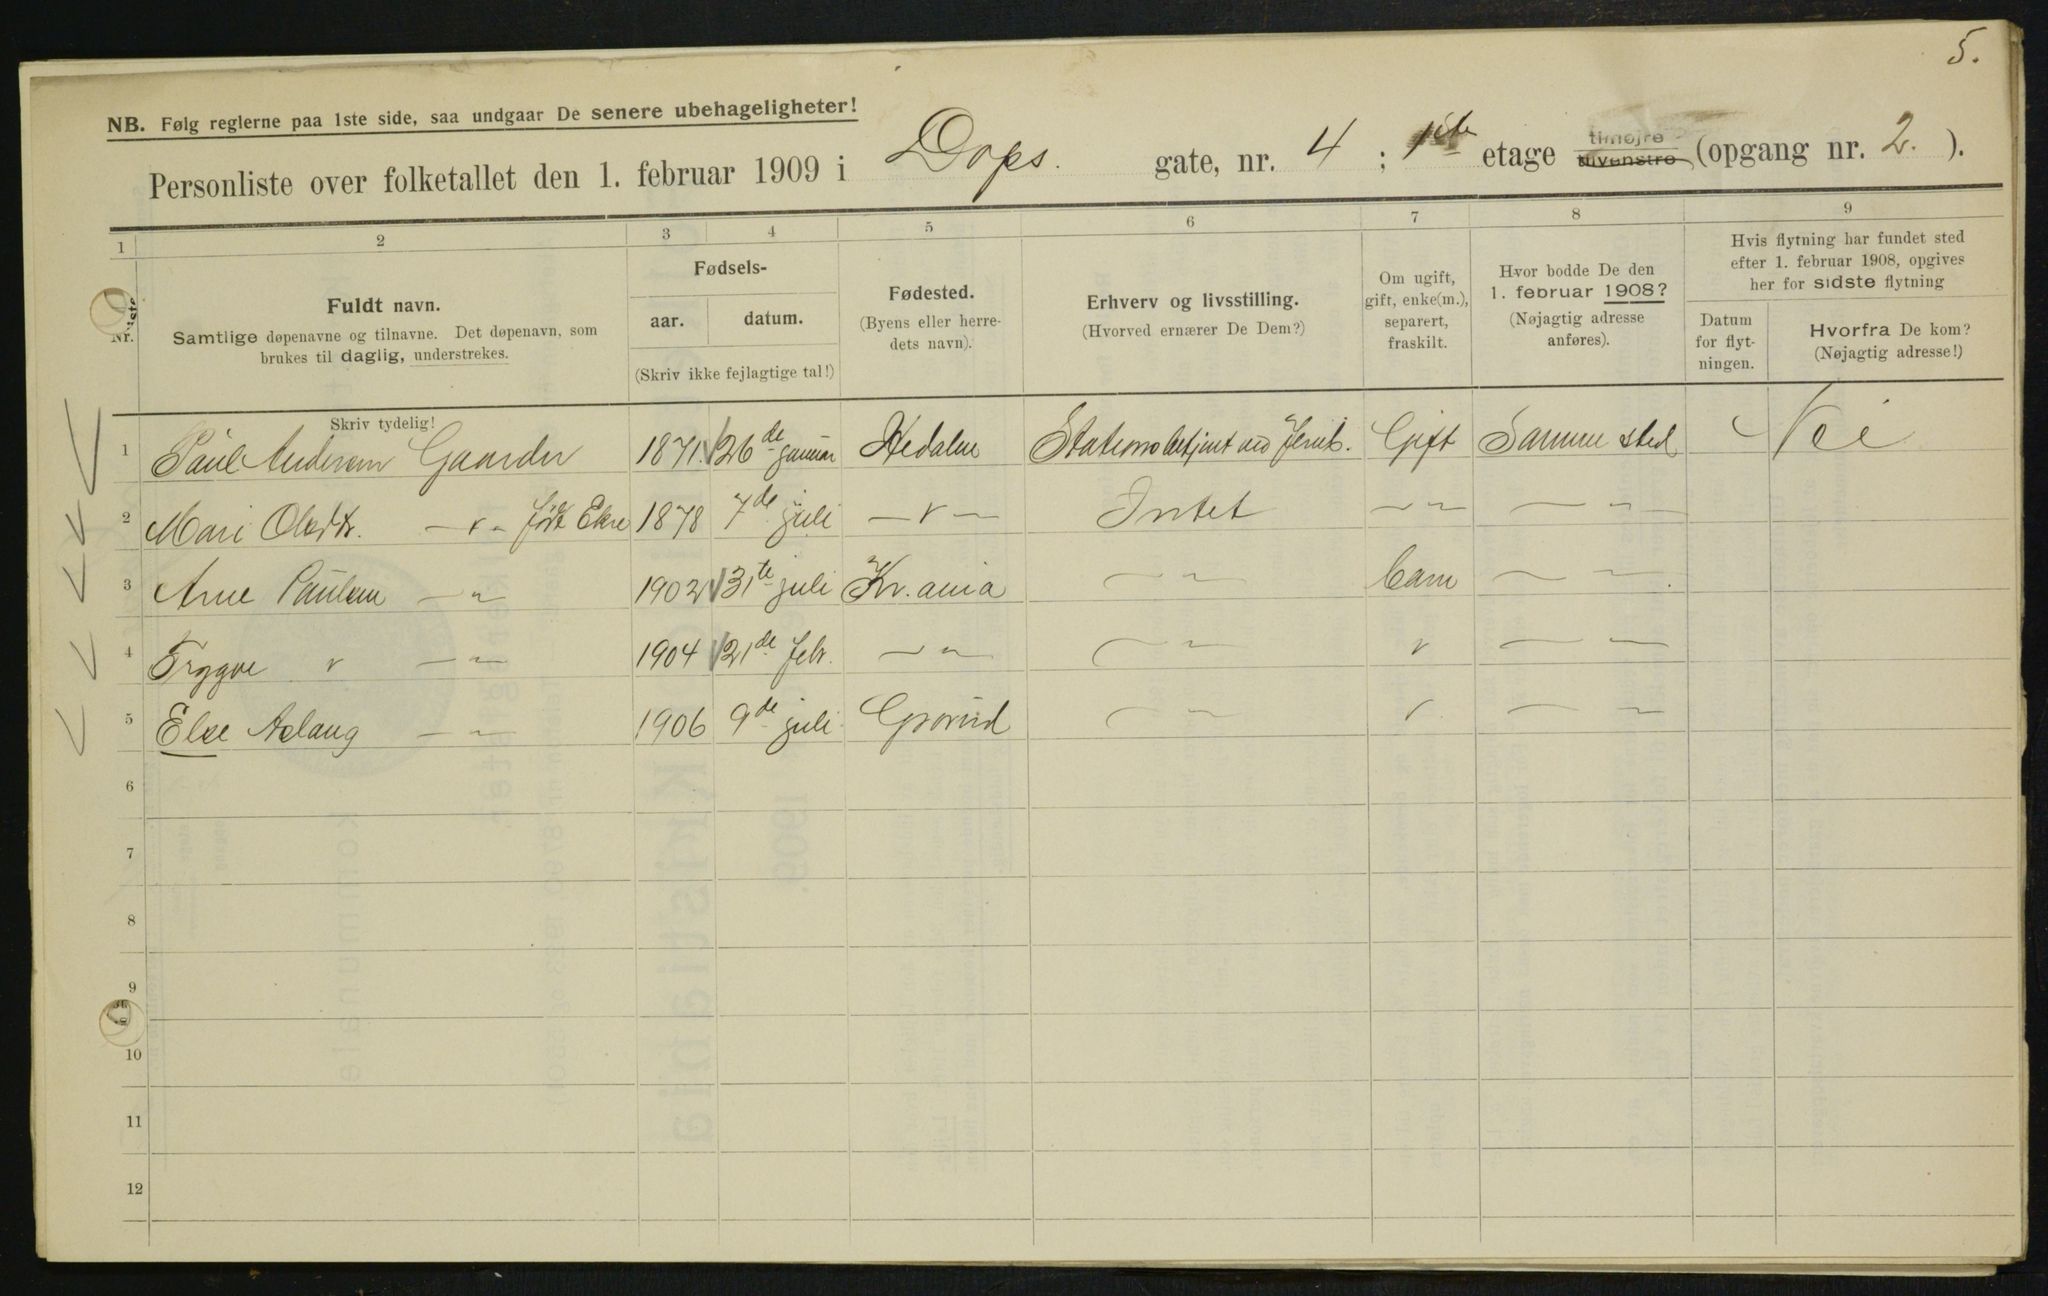 5.
NB. Følg reglerne paa 1ste side, saa undgaar De senere ubehageligheter!
Personliste over folketallet den 1. februar 1909 i Dops. gate, nr. 4 ; 1ste etage tilhøjre tilvenstre (opgang nr. 2. ).
1 2 3 4 5 6 7 8 9
Nr.
Fuldt navn.
Samtlige døpenavne og tilnavne. Det døpenavn, som
brukes til daglig, understrekes.
Fødsels-
aar. datum.
(Skriv ikke fejlagtige tal!)
Fødested.
(Byens eller herre-
dets navn).
Erhverv og livsstilling.
(Hvorved ernærer De Dem?)
Om ugift,
gift, enke(m.),
separert,
fraskilt.
Hvor bodde De den
1. februar 1908?
(Nøjagtig adresse
anføres).
Hvis flytning har fundet sted
efter 1. februar 1908, opgives
her for sidste flytning
Datum
for flyt-
ningen.
Hvorfra De kom?
(Nøjagtig adresse!)
Skriv tydelig!
1 Paul Andersen Gaarder 1871 26de januar Hedalen Stationsbetjent ved Jernb. Gift Samme sted Nei
2 Mari Olsdtr. — v — født Ekre 1878 7de juli — v — Intet — " — — " —
3 Arne Paulsen — " — 1902 31te juli Kr.ania — " — Barn — " —
4 Trygve v — " — 1904 21de febr. — " — — " — v — " —
5 Else Aslaug — " — 1906 9de juli Grorud — " — v — " —
6
7
8
9
10
11
12